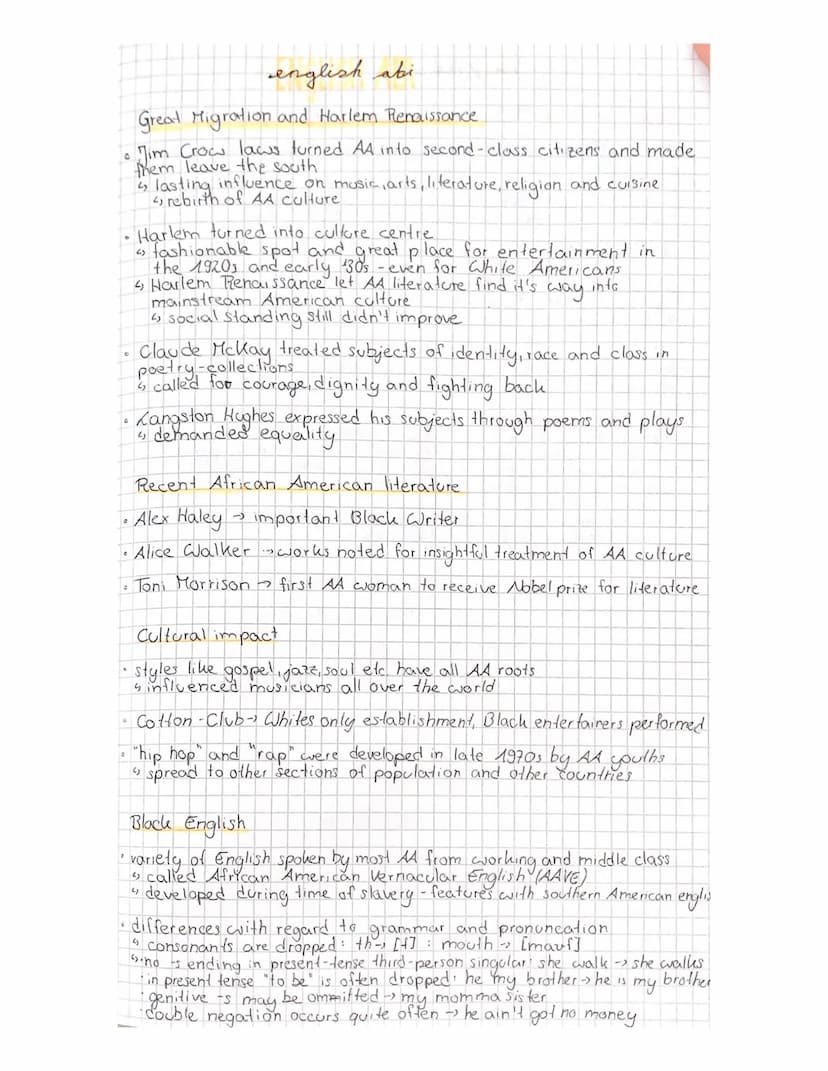 english abi
Great Migration and Harlem Renaissance
• Jim Crow laws turned AA into second-class citizens and made
them leave the south
↳ lasting influence on music, arts, literature, religion and cuisine
↳ rebirth of AA culture
• Harlem turned into culture centre
↳ fashionable spot and great place for entertainment in
the 1920s and early '30s - even for White Americans
↳ Harlem Renaissance let AA literature find it's way into
mainstream American culture
↳ social standing still didn't improve
• Claude McKay treated subjects of identity, race and class in
poetry-collections
↳ called for courage, dignity and fighting back
• Langston Hughes expressed his subjects through poems and plays
↳ demanded equality
Recent African American literature
• Alex Haley → important Black Writer
• Alice Walker → works noted for insightful treatment of AA culture
• Toni Morrison → first AA woman to receive Nobel prize for literature
Cultural impact
• styles like gospel, jazz, soul etc. have all AA roots
↳ influenced musicians all over the world
• Cotton-Club → Whites only establishment, Black entertainers performed
• "hip hop" and "rap" were developed in late 1970s by AA youths
↳ spread to other sections of population and other countries
Black English
• variety of English spoken by most AA from working and middle class
↳ called African American Vernacular English (AAVE)
↳ developed during time of slavery - features with southern American englis
• differences with regard to grammar and pronuncation
↳ consonants are dropped: th → [f] : mouth → [mauf]
↳ no -s ending in present-tense third-person singular: she walk → she walks
in present tense "to be" is often dropped: he my brother → he is my brother
genitive -s may be ommitted → my momma sister
double negation occurs quite often → he ain't got no money